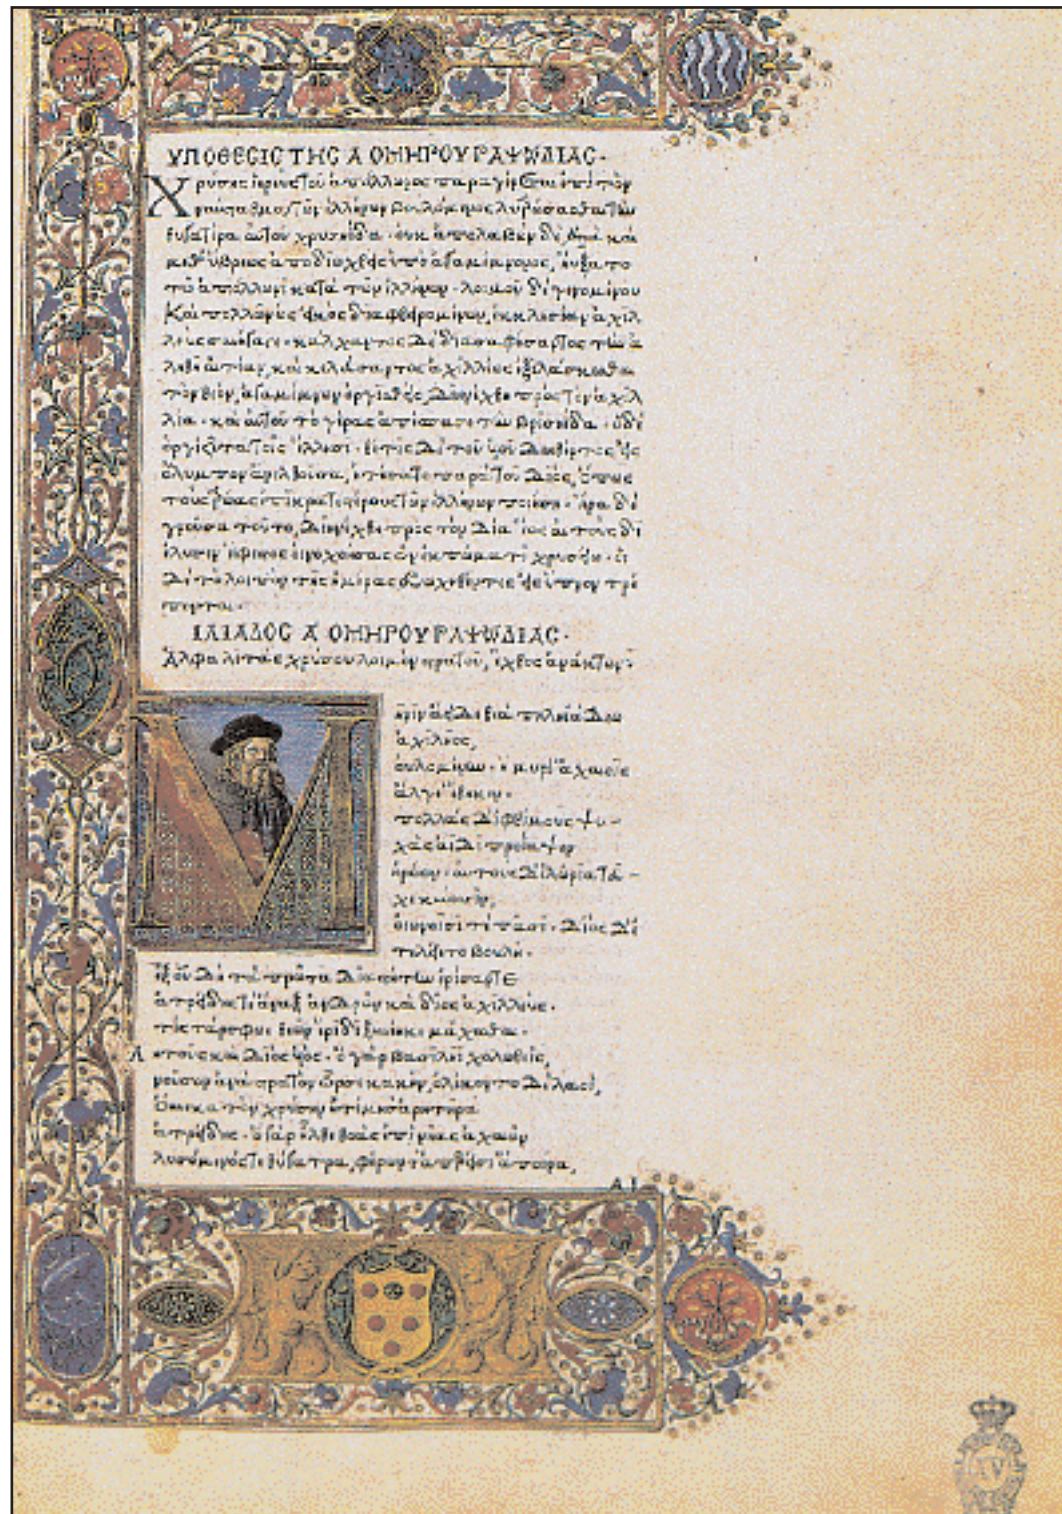 ΥΠΟΘΕCΙC ΤΗC Α ΟΜΗΡΟΥ ΡΑΨΩΔΙΑC·
Χρύσης ἱερεὺς τοῦ ἀπόλλωνος παραγίνεται ἐπὶ τὸν
ναύσταθμον τῶν ἑλλήνων βουλόμενος λυτρώσασθαι τὴν
θυγατέρα αὐτοῦ χρυσηίδα· οὐκ ἀπολαβὼν δὲ, ἀλλὰ καὶ
μεθ' ὕβρεως ἀποδιωχθεὶς ὑπὸ ἀγαμέμνονος, ηὔξατο
τῷ ἀπόλλωνι κατὰ τῶν ἑλλήνων· λοιμοῦ δὲ γενομένου
καὶ πολλῶν ὡς εἰκὸς διαφθειρομένων, ἐκκλησίαν ἀχιλ
λεὺς συνήγαγε· κάλχαντος δὲ διασαφήσαντος τὴν ἀ
ληθῆ αἰτίαν, καὶ κελεύσαντος ἀχιλλέως ἐξιλάσκεσθαι
τὸν θεὸν, ἀγαμέμνων ὀργισθεὶς, διηνέχθη πρὸς τὸν ἀχιλ
λέα· καὶ αὐτοῦ τὸ γέρας ἀπέσπασε τὴν βρισηίδα· ὁ δὲ
ὀργίζεται τοῖς ἕλλησι· θέτις δὲ τοῦ υἱοῦ δεηθέντος εἰς
ὄλυμπον ἀπελθοῦσα, ᾐτήσατο παρὰ τοῦ διὸς, ὅπως
τοὺς τρῶας ἐπικρατεστέρους τῶν ἑλλήνων ποιήσῃ· ἥρα δὲ
γνοῦσα τοῦτο, διηνέχθη πρὸς τὸν δία ἕως αὐτοὺς διέ
λυσεν ἥφαιστος οἰνοχοήσας ἐν ἐκπώματι χρυσέῳ· οἱ
δὲ τὸ λοιπὸν τῆς ἡμέρας εὐωχηθέντες εἰς ὕπνον τρέ
πονται·
ΙΛΙΑΔΟC Α ΟΜΗΡΟΥ ΡΑΨΩΔΙΑC·
Ἄλφα λιτὰς χρύσου λοιμὸν στρατοῦ, ἔχθος ἀνάκτων·
Μῆνιν ἄειδε θεὰ πηληϊάδεω
ἀχιλῆος,
οὐλομένην· ἣ μυρί' ἀχαιοῖς
ἄλγε' ἔθηκεν·
πολλὰς δ' ἰφθίμους ψυ-
χὰς ἄϊδι προΐαψεν
ἡρώων· αὐτοὺς δ' ἑλώρια τεῦ-
χε κύνεσσιν,
οἰωνοῖσί τε πᾶσι· διὸς δ' ἐ
τελείετο βουλή·
ἐξ οὗ δὴ τὰ πρῶτα διαστήτην ἐρίσαντε
ἀτρείδης τε ἄναξ ἀνδρῶν καὶ δῖος ἀχιλλεύς·
τίς τάρ σφωε θεῶν ἔριδι ξυνέηκε μάχεσθαι·
λητοῦς καὶ διὸς υἱός· ὃ γὰρ βασιλῆϊ χολωθεὶς,
νοῦσον ἀνὰ στρατὸν ὦρσε κακήν, ὀλέκοντο δὲ λαοί,
οὕνεκα τὸν χρύσην ἠτίμησ' ἀρητῆρα
ἀτρείδης· ὃ γὰρ ἦλθε θοὰς ἐπὶ νῆας ἀχαιῶν
λυσόμενός τε θύγατρα, φέρων τ' ἀπερείσι' ἄποινα,
Α Ι